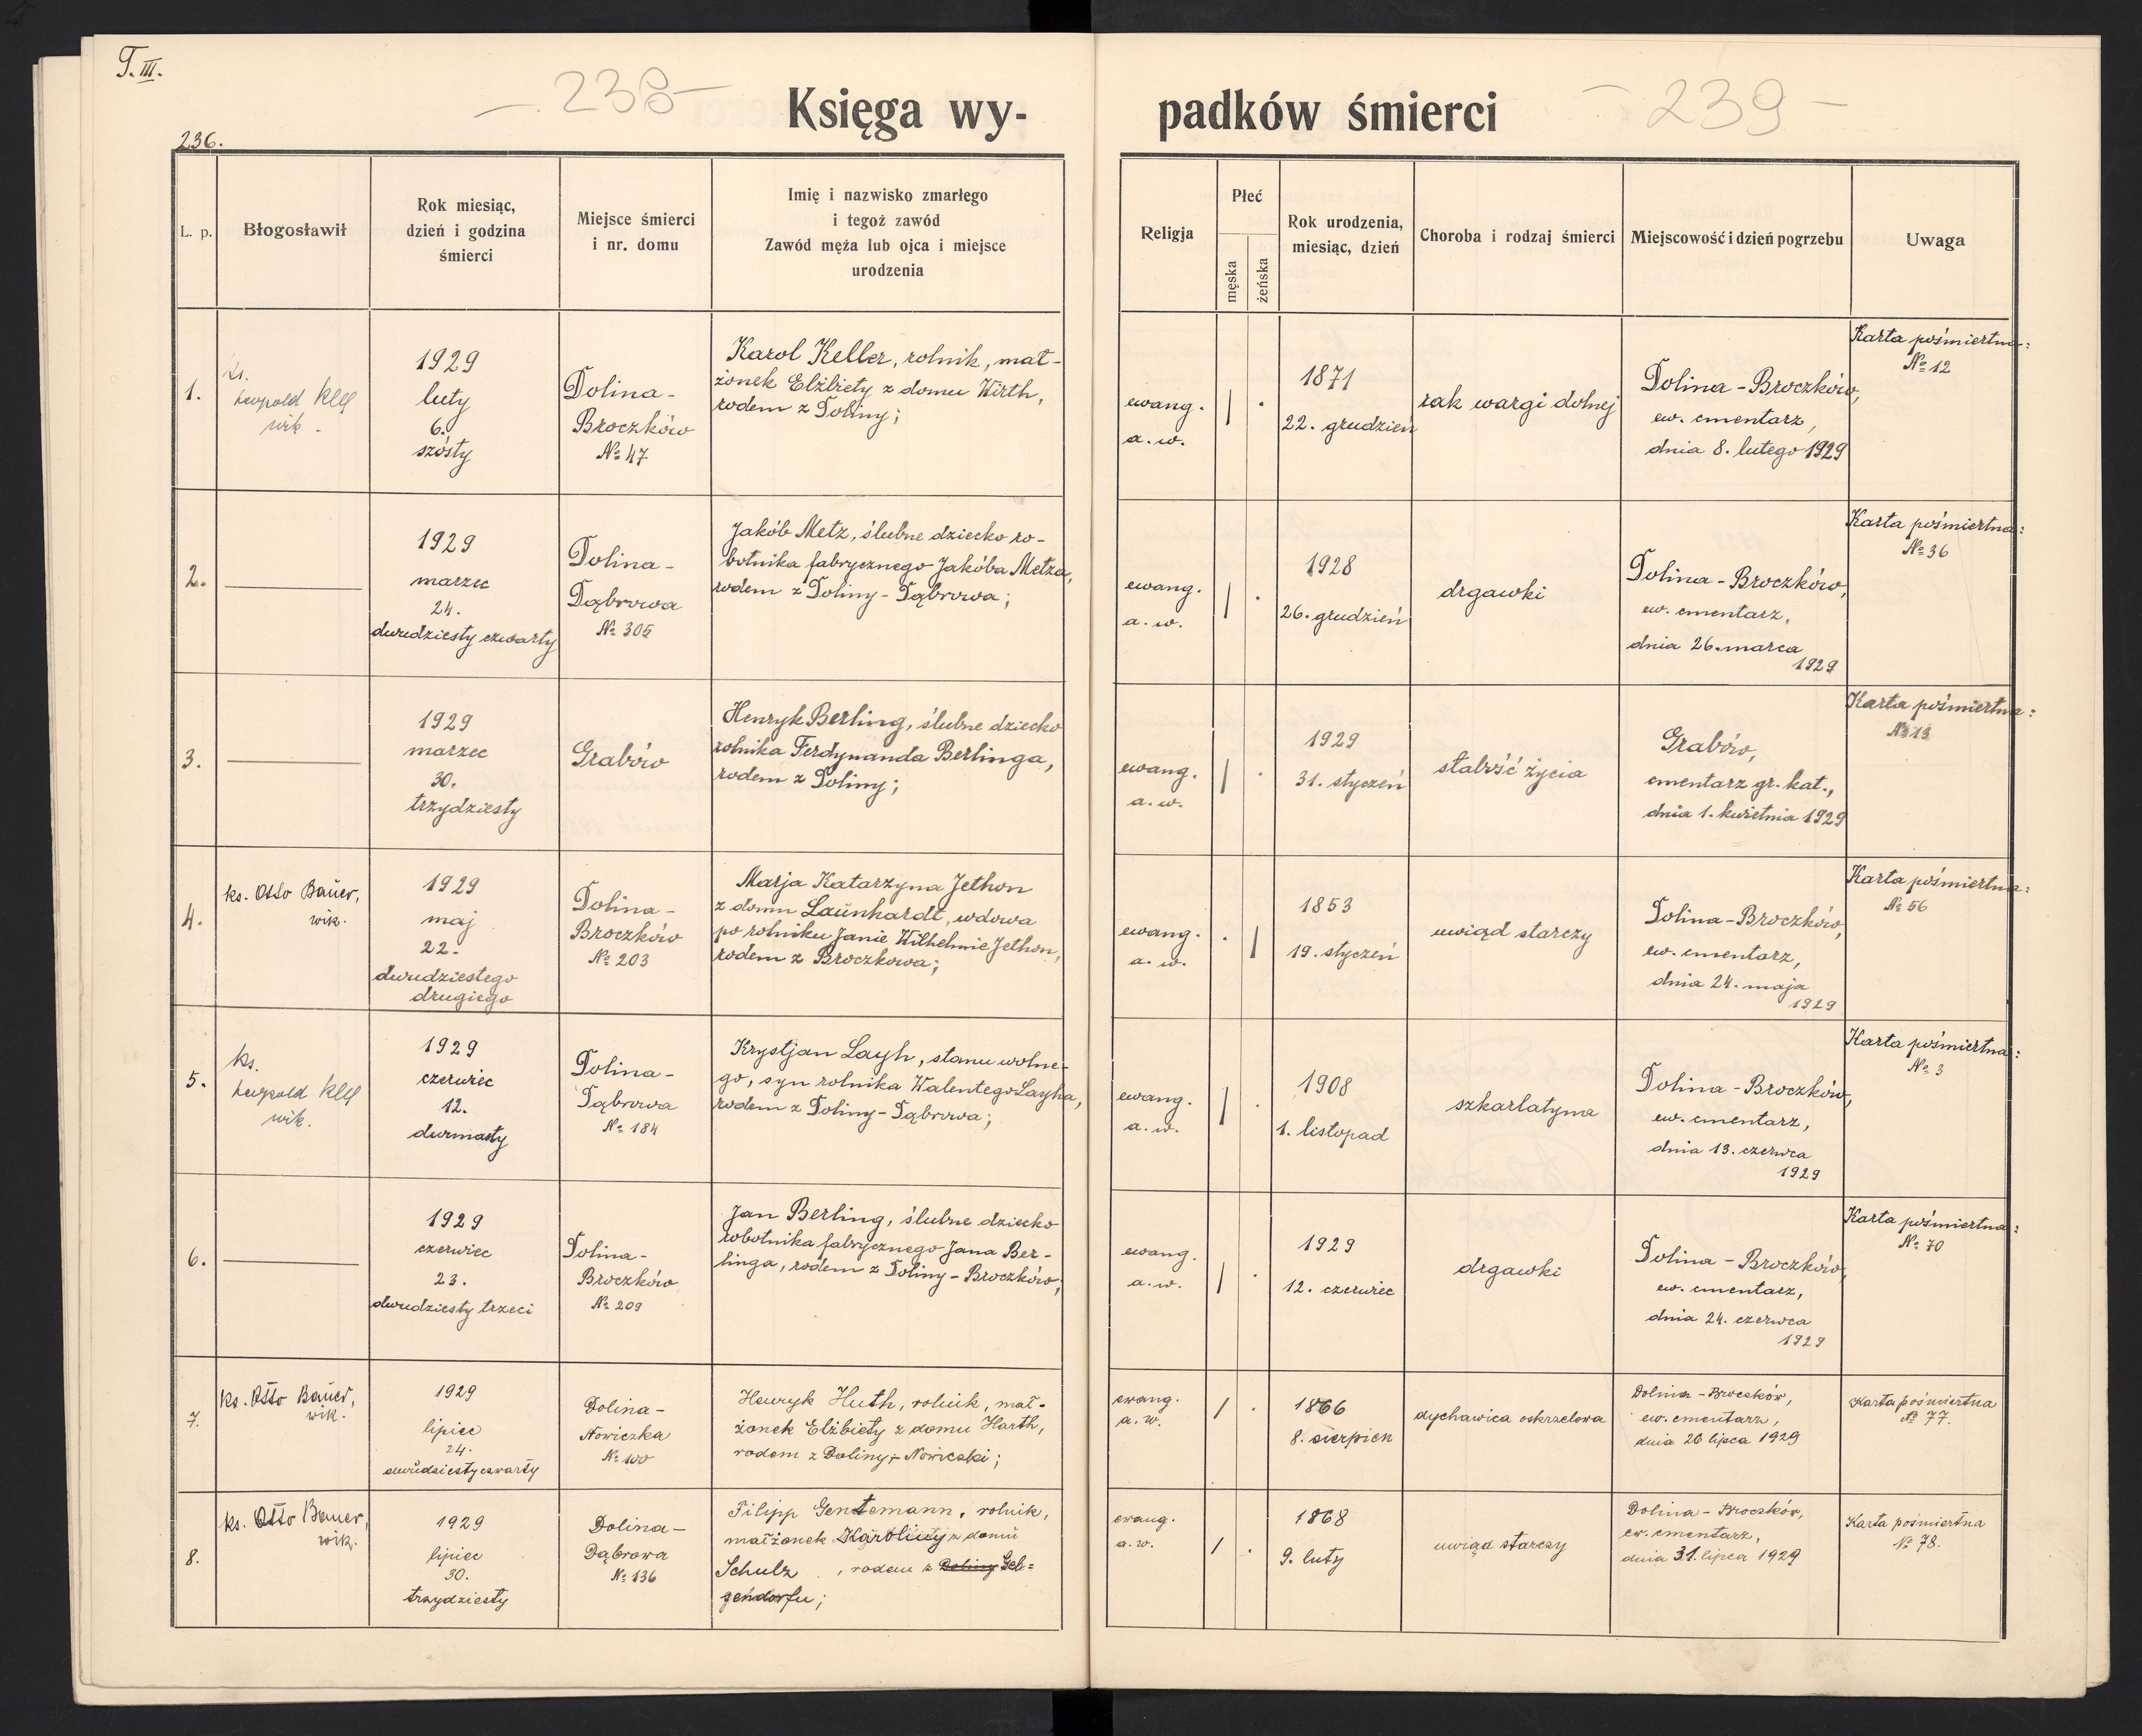 T. III.
- 238 -
Księga wy-
236.
L. p.
Błogosławił
Rok miesiąc,
dzień i godzina
śmierci
Miejsce śmierci
i nr. domu
Imię i nazwisko zmarłego
i tegoż zawód
Zawód męża lub ojca i miejsce
urodzenia
1.
ks.
Leopold
wik.
1929
luty
6.
szósty
Dolina-
Broczków
№ 47
Karol Keller, rolnik, mał-
żonek Elżbiety z domu Wirth,
rodem z Doliny;
2.
1929
marzec
24.
dwudziesty czwarty
Dolina-
Dąbrowa
№ 305
Jakób Metz, ślubne dziecko ro-
botnika fabrycznego Jakóba Metza,
rodem z Doliny-Dąbrowa;
3.
1929
marzec
30.
trzydziesty
Grabów
Henryk Berling, ślubne dziecko
rolnika Ferdynanda Berlinga,
rodem z Doliny;
4.
ks. Otto Bauer,
wik.
1929
maj
22.
dwudziestego
drugiego
Dolina-
Broczków
№ 203
Marja Katarzyna Jethon
z domu Launhardt, wdowa
po rolniku Janie Wilhelmie Jethon,
rodem z Broczkowa;
5.
ks.
Leopold
wik.
1929
czerwiec
12.
dwunasty
Dolina-
Dąbrowa
№ 184
Krystjan Layh, stanu wolne-
go, syn rolnika Walentego Layha,
rodem z Doliny-Dąbrowa;
6.
1929
czerwiec
23.
dwudziesty trzeci
Dolina-
Broczków
№ 209
Jan Berling, ślubne dziecko
robotnika fabrycznego Jana Ber-
linga, rodem z Doliny-Broczków;
7.
ks. Otto Bauer,
wik.
1929
lipiec
24.
dwudziestyczwarty
Dolina-
Nowiczka
№ 100
Henryk Huth, rolnik, mał-
żonek Elżbiety z domu Harth,
rodem z Doliny-Nowiczki;
8.
ks. Otto Bauer,
wik.
1929
lipiec
30.
trzydziesty
Dolina-
Dąbrowa
№ 136
Filipp Gentemann, rolnik,
małżonek Karoliny z domu
Schulz, rodem z Doliny Gel-
gendorfu;
padków śmierci
- 239 -
Religja
Płeć
męska
żeńska
Rok urodzenia,
miesiąc, dzień
Choroba i rodzaj śmierci
Miejscowość i dzień pogrzebu
Uwaga
ewang.
a. w.
1871
22. grudzień
rak wargi dolnej
Dolina-Broczków,
ew. cmentarz,
dnia 8. lutego 1929
Karta pośmiertna:
№ 12
ewang.
a. w.
1928
26. grudzień
drgawki
Dolina-Broczków,
ew. cmentarz,
dnia 26. marca
1929
Karta pośmiertna:
№ 36
ewang.
a. w.
1929
31. styczeń
słabość życia
Grabów,
cmentarz gr. kat.,
dnia 1. kwietnia 1929
Karta pośmiertna:
№ 13
ewang.
a. w.
1853
19. styczeń
uwiąd starczy
Dolina-Broczków,
ew. cmentarz,
dnia 24. maja
1929
Karta pośmiertna:
№ 56
ewang.
a. w.
1908
1. listopad
szkarlatyna
Dolina-Broczków,
ew. cmentarz,
dnia 13. czerwca
1929
Karta pośmiertna:
№ 3
ewang.
a. w.
1929
12. czerwiec
drgawki
Dolina-Broczków,
ew. cmentarz,
dnia 24. czerwca
1929
Karta pośmiertna:
№ 70
ewang.
a. w.
1866
8. sierpień
dychawica oskrzelowa
Dolina-Broczków,
ew. cmentarz,
dnia 26 lipca 1929
Karta pośmiertna
№ 77.
ewang.
a. w.
1868
9. luty
uwiąd starczy
Dolina-Broczków,
ew. cmentarz,
dnia 31. lipca 1929
Karta pośmiertna
№ 78.